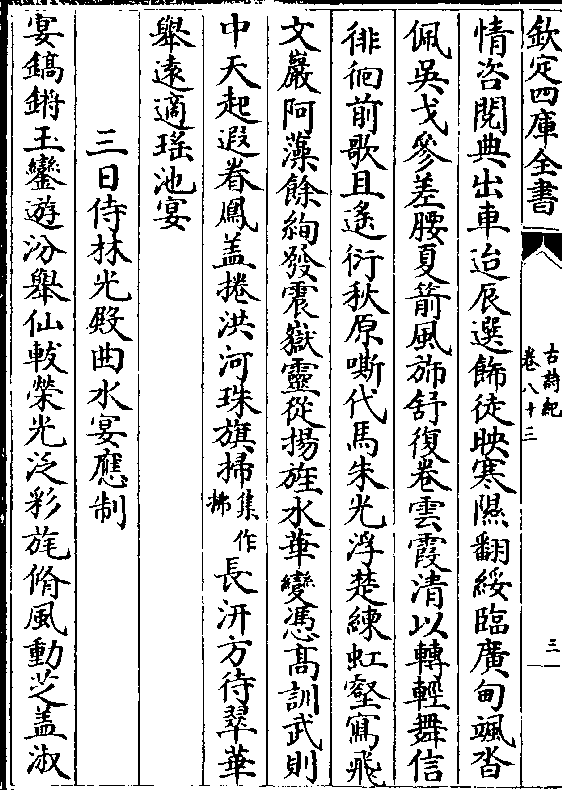 欽定四庫全書
古詩紀
卷八十三
三
情咨閱典出車迨辰選飾徒映寒隰翻綏臨廣甸颯沓
佩吳戈參差腰夏箭風斾舒復卷雲霞清以轉輕舞信
徘徊前歌且遙衍秋原嘶代馬朱光浮楚練虹壑寫飛
文巖阿藻餘絢發震嶽靈從揚旌水華變憑髙訓武則
中天起遐眷鳳盖捲洪河珠旗掃集作拂長汧方待翠華
舉遠適瑤池宴
三日侍林光殿曲水宴應制
宴鎬鏘玉鑾遊汾舉仙軷榮光泛彩旄脩風動芝盖淑